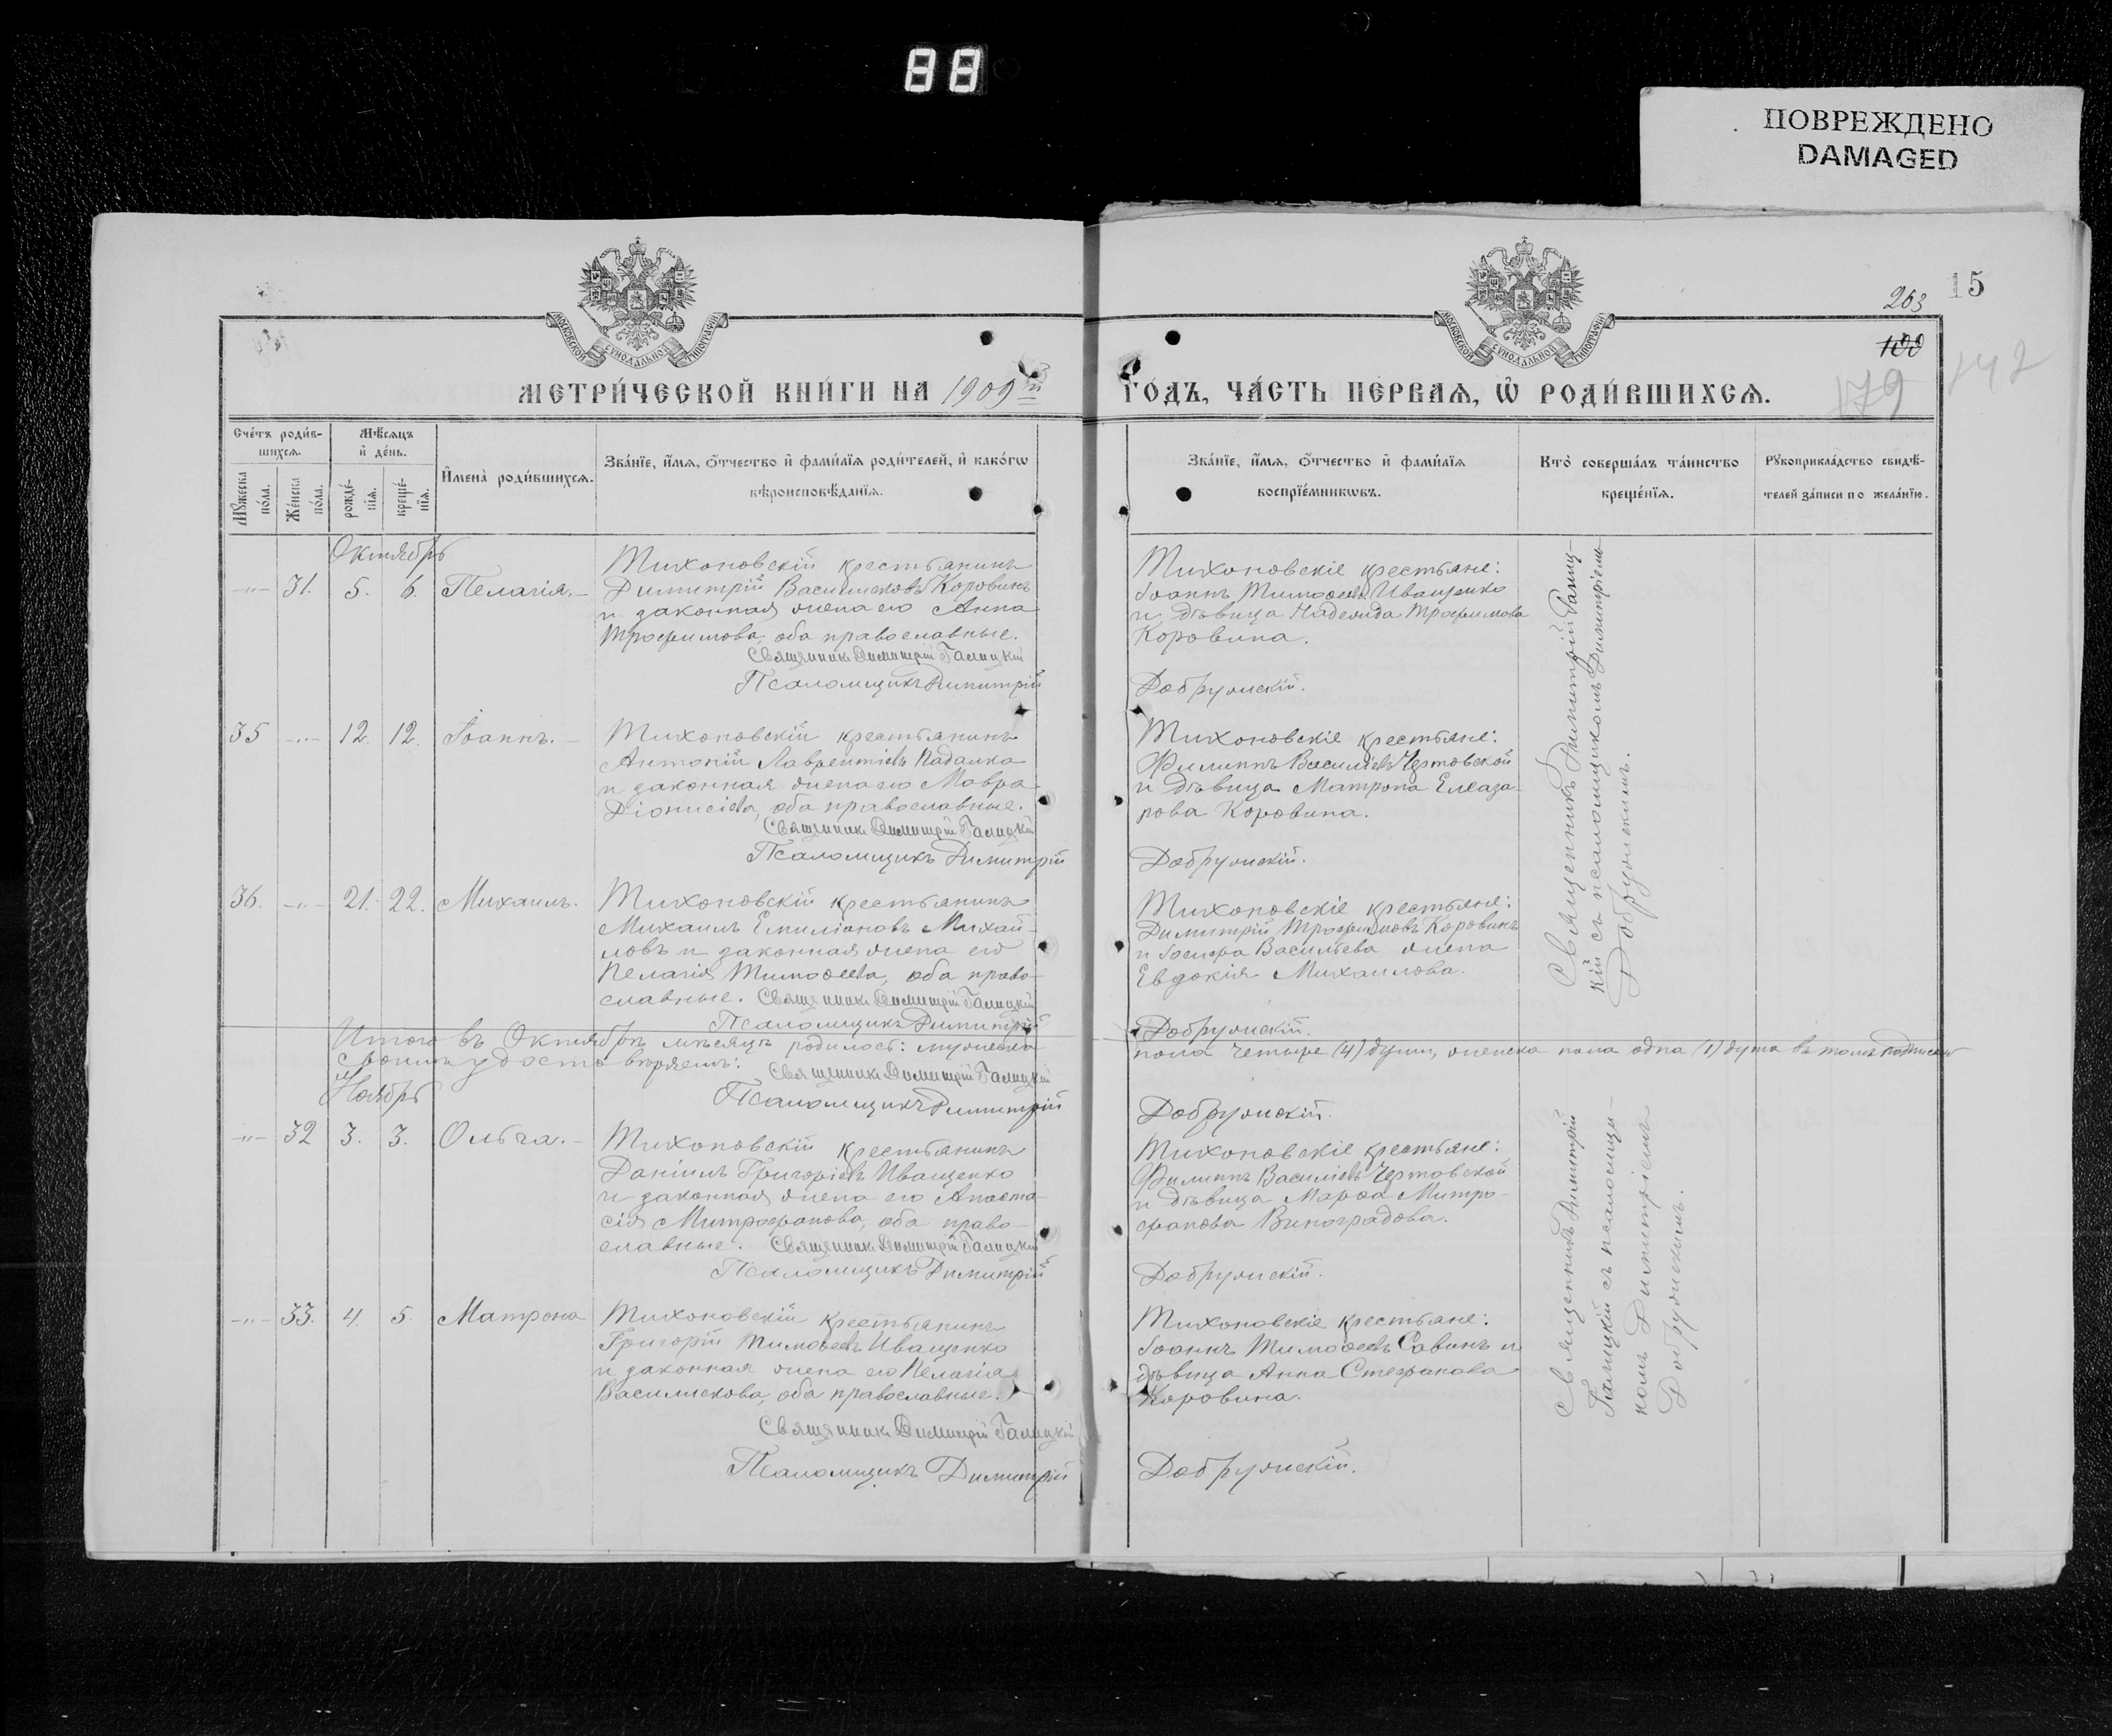 88
ПОВРЕЖДЕНО
DAMAGED
15
263
100
179
142
МОСКОВСКОЙ СѴНОДАЛЬНОЙ ТИПОГРАФІИ
МОСКОВСКОЙ СѴНОДАЛЬНОЙ ТИПОГРАФІИ
МЕТРИ́ЧЕСКОЙ КНИ́ГИ НА 1909й
ГО́ДЪ, ЧА́СТЬ ПЕ́РВАѦ, Ѡ҆ РОДИ́ВШИХСѦ.
Сче́тъ роди́в-
шихсѧ.
Мꙋ́жеска
по́ла.
Же́нска
по́ла.
Мѣ́сѧцъ
и҆ де́нь.
рожде́-
нїѧ.
креще́-
нїѧ.
И҆мена̀ роди́вшихсѧ.
Зва́нїе, и҆́мѧ, ѻ҆́тчество и҆ фами́лїѧ роди́телей, и҆ како́гѡ
вѣроисповѣ́данїѧ.
Зва́нїе, и҆́мѧ, ѻ҆́тчество и҆ фами́лїѧ
воспрїе́мникѡвъ.
Кто̀ соверша́лъ та́инство
креще́нїѧ.
Рꙋкоприкла́дство свидѣ́-
телей за́писи по жела́нїю.
Октябрь
-"- 31. 5. 6. Пелагія.-
Тихоновскій крестьянинъ
Димитрій Василисковъ Коровинъ
и законная жена его Анна
Трофимова, оба православные.
Священникъ Димитрій Галицкій
Псаломщикъ Димитрій
Тихоновскіе крестьяне:
Іоаннъ Тимоѳеевъ Иващенко
и дѣвица Надежда Трофимова
Коровина.
Добружскій.
35 -"- 12. 12. Іоаннъ.-
Тихоновскій крестьянинъ
Антоній Лаврентіевъ Падалка
и законная жена его Мавра
Діонисіева, оба православные.
Священникъ Димитрій Галицкій
Псаломщикъ Димитрій
Тихоновскіе крестьяне:
Филиппъ Василіевъ Чертовской
и дѣвица Матрона Елеаза-
рова Коровина.
Добружскій.
36. -"- 21. 22. Михаилъ.
Тихоновскій крестьянинъ
Михаилъ Емиліановъ Михай-
ловъ и законная жена его
Пелагія Тимоѳеева, оба право-
славные. Священникъ Димитрій Галицкій
Псаломщикъ Димитрій
Тихоновскіе крестьяне:
Димитрій Трофимовъ Коровинъ
и Іосифа Васильева жена
Евдокія Михаилова.
Добружскій.
Священникъ Димитрій Галиц-
кій съ псаломщикомъ Димитріемъ
Добружскимъ.
Итого въ Октябрѣ мѣсяцѣ родилось: мужеска
пола четыре (4) души, женска пола одна (1) душа въ томъ подписомъ
своимъ удостовѣряемъ: Священникъ Димитрій Галицкій
Псаломщикъ Димитрій
Добружскій.
Ноябрь
-"- 32 3. 3. Ольга.-
Тихоновскій крестьянинъ
Даніилъ Григоріевъ Иващенко
и законная жена его Анаста-
сія Митрофанова, оба право-
славные. Священникъ Димитрій Галицкій
Псаломщикъ Димитрій
Тихоновскіе крестьяне:
Филиппъ Василіевъ Чертовской
и дѣвица Марѳа Митро-
фанова Виноградова.
Добружскій.
-"- 33. 4. 5. Матрона
Тихоновскій крестьянинъ
Григорій Тимоѳеевъ Иващенко
и законная жена его Пелагія
Василискова, оба православные.
Священникъ Димитрій Галицкій
Псаломщикъ Димитрій
Тихоновскіе крестьяне:
Іоаннъ Тимоѳеевъ Савинъ и
дѣвица Анна Стефанова
Коровина.
Добружскій.
Священникъ Димитрій
Галицкій съ псаломщи-
комъ Димитріемъ
Добружскимъ.